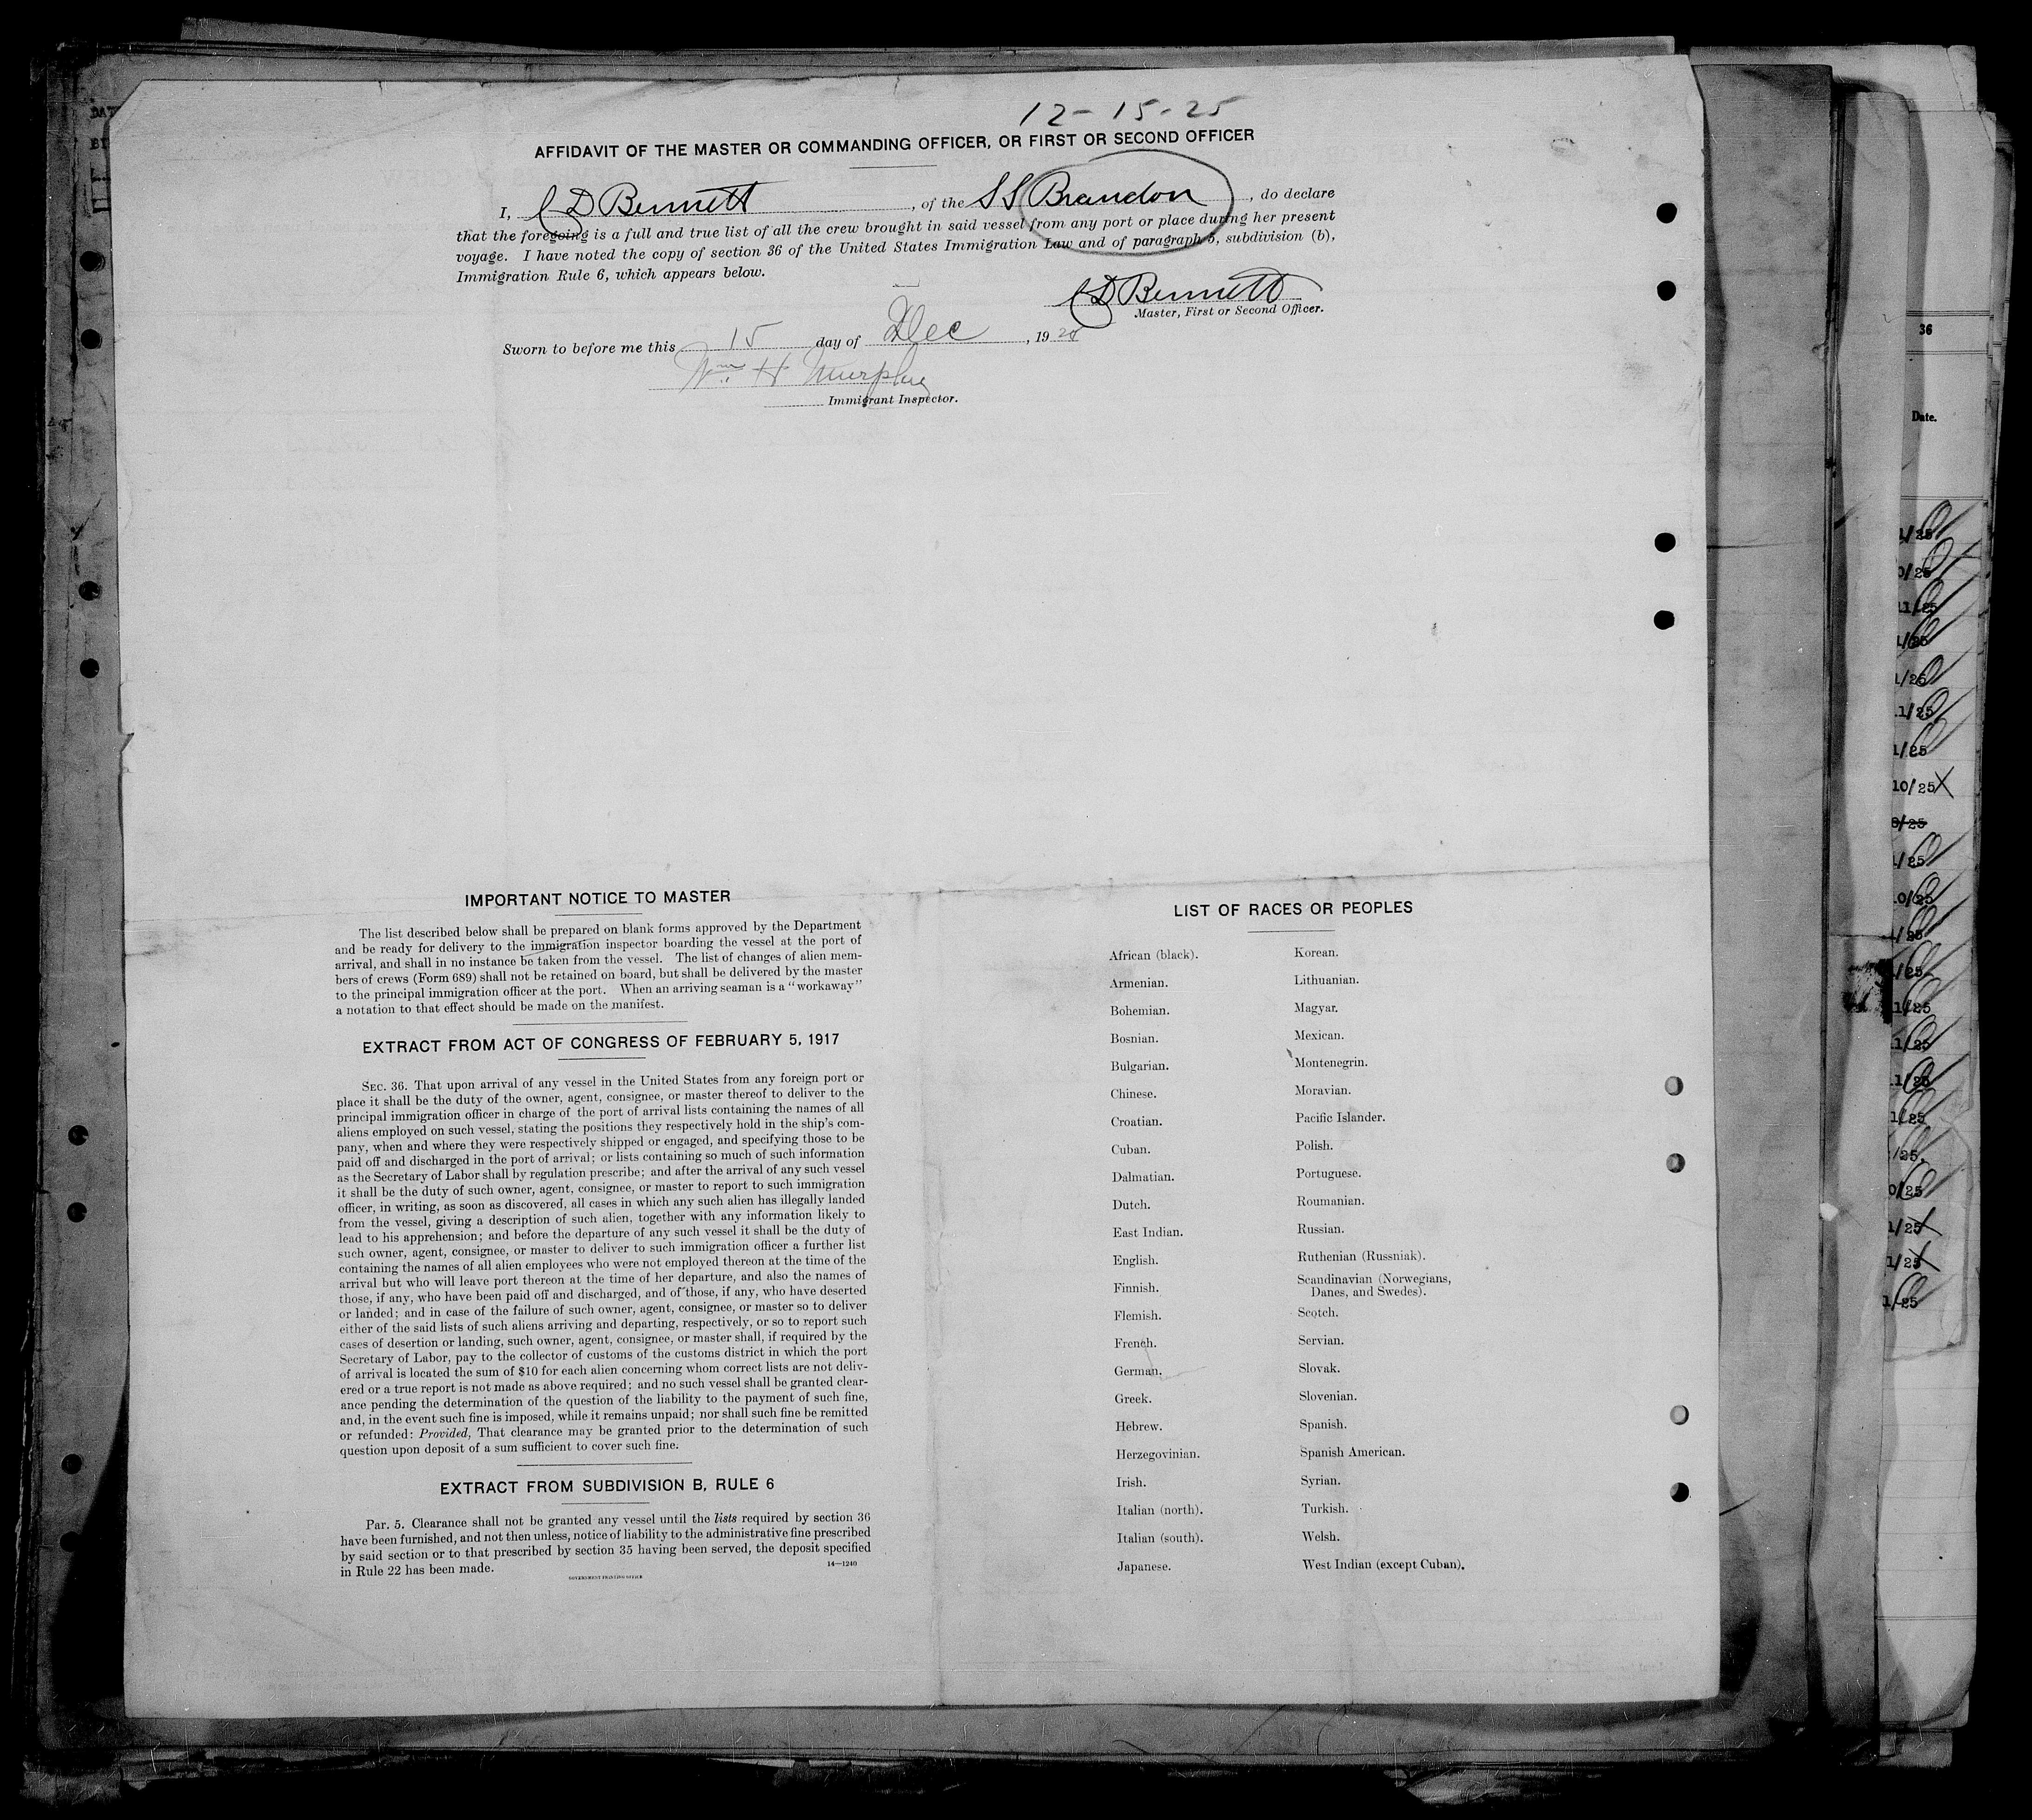 12-15-25
AFFIDAVIT OF THE MASTER OR COMMANDING OFFICER, OR FIRST OR SECOND OFFICER
I, C D Bennett, of the SS Brandon, do declare
that the foregoing is a full and true list of all the crew brought in said vessel from any port or place during her present
voyage. I have noted the copy of section 36 of the United States Immigration Law and of paragraph 5, subdivision (b),
Immigration Rule 6, which appears below.
C D Bennett
Master, First or Second Officer.
Sworn to before me this 15 day of Dec, 19
Wm H Murphy
Immigrant Inspector.
IMPORTANT NOTICE TO MASTER
The list described below shall be prepared on blank forms approved by the Department
and be ready for delivery to the immigration inspector boarding the vessel at the port of
arrival, and shall in no instance be taken from the vessel. The list of changes of alien mem-
bers of crews (Form 689) shall not be retained on board, but shall be delivered by the master
to the principal immigration officer at the port. When an arriving seaman is a "workaway"
a notation to that effect should be made on the manifest.
EXTRACT FROM ACT OF CONGRESS OF FEBRUARY 5, 1917
SEC. 36. That upon arrival of any vessel in the United States from any foreign port or
place it shall be the duty of the owner, agent, consignee, or master thereof to deliver to the
principal immigration officer in charge of the port of arrival lists containing the names of all
aliens employed on such vessel, stating the positions they respectively hold in the ship's com-
pany, when and where they were respectively shipped or engaged, and specifying those to be
paid off and discharged in the port of arrival; or lists containing so much of such information
as the Secretary of Labor shall by regulation prescribe; and after the arrival of any such vessel
it shall be the duty of such owner, agent, consignee, or master to report to such immigration
officer, in writing, as soon as discovered, all cases in which any such alien has illegally landed
from the vessel, giving a description of such alien, together with any information likely to
lead to his apprehension; and before the departure of any such vessel it shall be the duty of
such owner, agent, consignee, or master to deliver to such immigration officer a further list
containing the names of all alien employees who were not employed thereon at the time of the
arrival but who will leave port thereon at the time of her departure, and also the names of
those, if any, who have been paid off and discharged, and of those, if any, who have deserted
or landed; and in case of the failure of such owner, agent, consignee, or master so to deliver
either of the said lists of such aliens arriving and departing, respectively, or so to report such
cases of desertion or landing, such owner, agent, consignee, or master shall, if required by the
Secretary of Labor, pay to the collector of customs of the customs district in which the port
of arrival is located the sum of $10 for each alien concerning whom correct lists are not deliv-
ered or a true report is not made as above required; and no such vessel shall be granted clear-
ance pending the determination of the question of the liability to the payment of such fine,
and, in the event such fine is imposed, while it remains unpaid; nor shall such fine be remitted
or refunded: Provided, That clearance may be granted prior to the determination of such
question upon deposit of a sum sufficient to cover such fine.
EXTRACT FROM SUBDIVISION B, RULE 6
Par. 5. Clearance shall not be granted any vessel until the lists required by section 36
have been furnished, and not then unless, notice of liability to the administrative fine prescribed
by said section or to that prescribed by section 35 having been served, the deposit specified
in Rule 22 has been made.
14—1240
GOVERNMENT PRINTING OFFICE
LIST OF RACES OR PEOPLES
African (black).
Armenian.
Bohemian.
Bosnian.
Bulgarian.
Chinese.
Croatian.
Cuban.
Dalmatian.
Dutch.
East Indian.
English.
Finnish.
Flemish.
French.
German.
Greek.
Hebrew.
Herzegovinian.
Irish.
Italian (north).
Italian (south).
Japanese.
Korean.
Lithuanian.
Magyar.
Mexican.
Montenegrin.
Moravian.
Pacific Islander.
Polish.
Portuguese.
Roumanian.
Russian.
Ruthenian (Russniak).
Scandinavian (Norwegians,
Danes, and Swedes).
Scotch.
Servian.
Slovak.
Slovenian.
Spanish.
Spanish American.
Syrian.
Turkish.
Welsh.
West Indian (except Cuban).
36
Date.
10/25